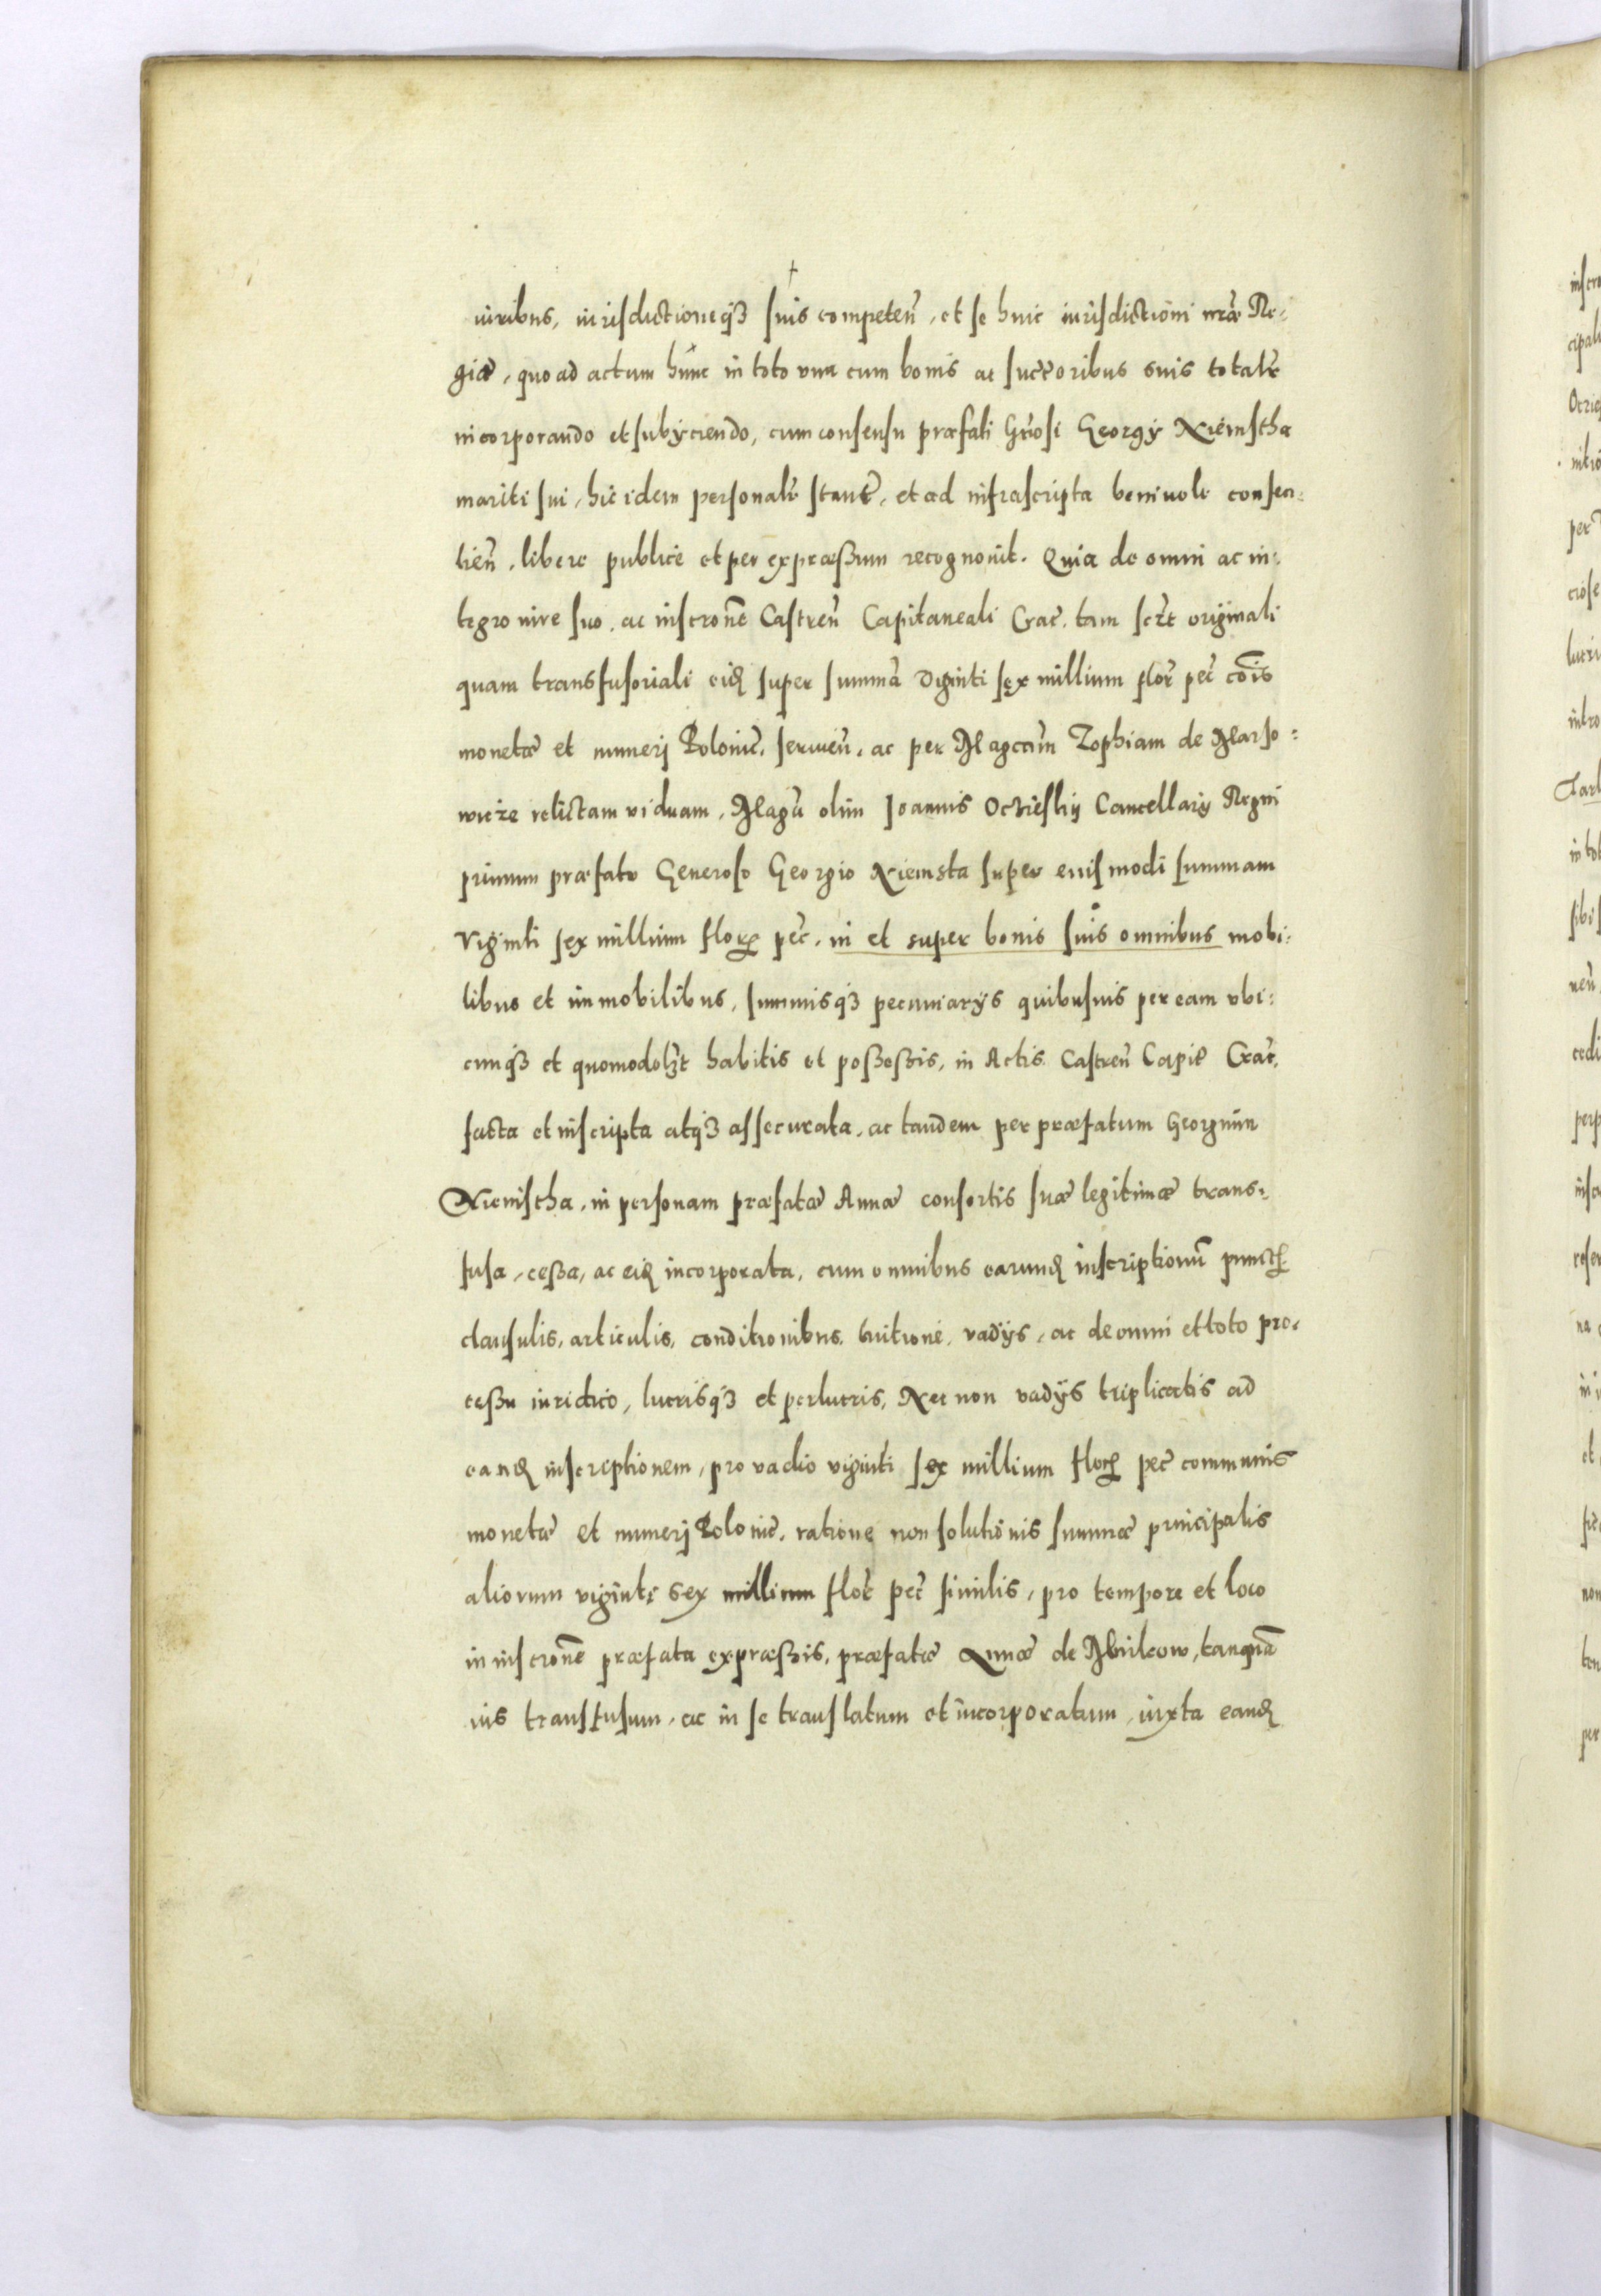 iuribus, iurisdictioneqȝ suis competeñ, et se huic iurisdictioni nr̃æ Re-
giæ, quo ad actum hunc in toto una cum bonis ac succ̃oribus suis totalr̃
incorporando et subÿciendo, cum consensu præfati Gn̄osi Georgÿ Niemstha
mariti sui, hic idem personalr̃ stanť, et ad infrascripta benivole consen-
tieñ, libere publice et per expræssum recognovit. Quia de omni ac in-
tegro iure suo, ac inscr̃one Castreñ Capitaneali Crac̃. tam sc̃ȝt originali
quam transfusoriali eiđ super summã Viginti sex millium flor̃ pec̃ cõis
monetæ et numerj Poloniæ, servieñ, ac per Magc̃am Zophiam de Marso-
wicze relictam viduam, Magci olim Joannis Oczieskÿ Cancellarÿ Regni
primum præfato Generoso Georgio Niemsta super eiusmodi summam
Viginti sex millium florꝝ pec̃. in et super bonis suis omnibus mobi-
libus et immobilibus, summisqȝ pecuniarÿs quibusvis per eam ubi-
cunqȝ et quomodolȝt habitis et possessis, in Actis Castreñ Capiť Crac̃.
facta et inscripta atqȝ assecurata, ac tandem per præfatum Georgium
Niemstha, in personam præfatæ Annæ consortis suæ legitimæ trans-
fusa, cessa, ac eiđ incorporata, cum omnibus earunđ inscriptionũ punctꝭ
clausulis, articulis, conditionibus, tuitione, vadÿs, ac de omni et toto pro-
cessu iuridico, lucrisqȝ et perlucris, Nec non vadÿs triplicatis ad
eanđ inscriptionem, pro vadio viginti sex millium florꝝ pec̃ communis
monetæ et numerj Poloniæ, ratione non solutionis summæ principalis
aliorum viginti sex millium flor̃ pec̃ similis, pro tempore et loco
in inscr̃one præfata expræssis, præfatæ Annæ de Wilcow, tanquã
ius transfusum, ac in se translatum et incorporatum, iuxta eanđ